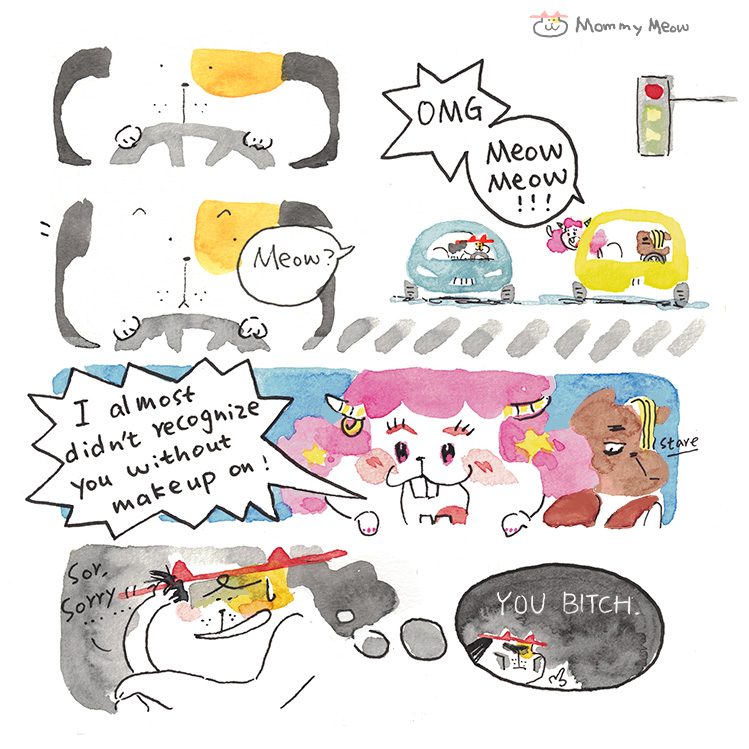 Mommy Meow
OMG
Meow
Meow
!!!
Meow?
I almost
didn't recognize
you without
makeup on!
stare
Sor,
Sorry......
YOU BITCH.